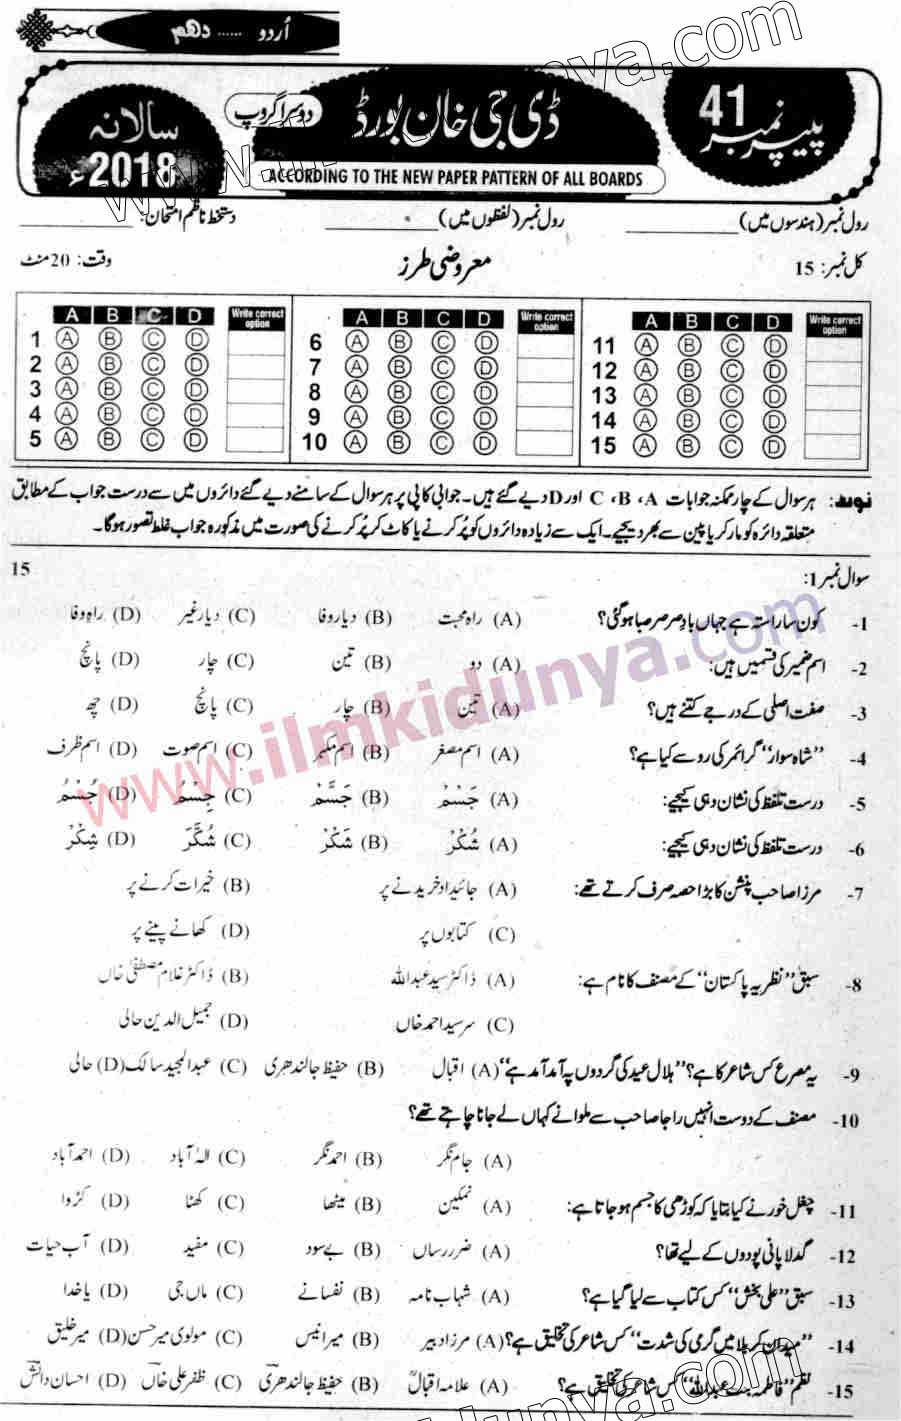 اُردو ...... دهم
پیپر نمبر 41
ڈی جی خان بورڈ
دوسرا گروپ
سالانہ 2018ء
ACCORDING TO THE NEW PAPER PATTERN OF ALL BOARDS
رول نمبر (ہندسوں میں) ____________ رول نمبر (لفظوں میں) ____________ دستخط ناظم امتحان: ____________
کل نمبر: 15 معروضی طرز وقت: 20 منٹ
A B C D Write correct option A B C D Write correct option A B C D Write correct option
1 A B C D 6 A B C D 11 A B C D
2 A B C D 7 A B C D 12 A B C D
3 A B C D 8 A B C D 13 A B C D
4 A B C D 9 A B C D 14 A B C D
5 A B C D 10 A B C D 15 A B C D
نوٹ: ہر سوال کے چار ممکنہ جوابات A ، B ، C اور D دیے گئے ہیں۔ جوابی کاپی پر ہر سوال کے سامنے دیے گئے دائروں میں سے درست جواب کے مطابق
متعلقہ دائرہ کو مارکر یا پین سے بھر دیجیے۔ ایک سے زیادہ دائروں کو پُر کرنے یا کاٹ کر پُر کرنے کی صورت میں مذکورہ جواب غلط تصور ہوگا۔
سوال نمبر 1: 15
1- کون سا راستہ ہے جہاں بادِ صرصر صبا ہوگئی؟ (A) راہ محبت (B) دیار وفا (C) دیار غیر (D) راہ وفا
2- اسم ضمیر کی قسمیں ہیں: (A) دو (B) تین (C) چار (D) پانچ
3- صفت اصلی کے درجے کتنے ہیں؟ (A) تین (B) چار (C) پانچ (D) چھ
4- ”شاہ سوار“ گرائمر کی رو سے کیا ہے؟ (A) اسم مصغر (B) اسم مکبر (C) اسم صوت (D) اسم ظرف
5- درست تلفظ کی نشان دہی کیجیے: (A) جَسْمْ (B) جَسَّمْ (C) جِسْمْ (D) جُسْمْ
6- درست تلفظ کی نشان دہی کیجیے: (A) شُكْرْ (B) شَكْرْ (C) شُكَّرَ (D) شِكْرْ
7- مرزا صاحب پنشن کا بڑا حصہ صرف کرتے تھے: (A) جائیداد خریدنے پر (B) خیرات کرنے پر
(C) کتابوں پر (D) کھانے پینے پر
8- سبق ”نظریہ پاکستان“ کے مصنف کا نام ہے: (A) ڈاکٹر سید عبداللہ (B) ڈاکٹر غلام مصطفیٰ خاں
(C) سرسید احمد خاں (D) جمیل الدین حالی
9- یہ مصرع کس شاعر کا ہے؟ ”ہلال عید کی گردوں پہ آمد آمد ہے“ (A) اقبال (B) حفیظ جالندھری (C) عبدالمجید سالک (D) حالی
10- مصنف کے دوست انہیں راجا صاحب سے ملوانے کہاں لے جانا چاہتے تھے؟
(A) جام نگر (B) احمد نگر (C) الہٰ آباد (D) احمد آباد
11- چغل خور نے کیا بتایا کہ کوڑھی کا جسم ہو جاتا ہے: (A) نمکین (B) میٹھا (C) کھٹا (D) کڑوا
12- گدلا پانی پودوں کے لیے تھا؟ (A) ضرر رساں (B) بے سود (C) مفید (D) آب حیات
13- سبق ”علی بخش“ کس کتاب سے لیا گیا ہے؟ (A) شہاب نامہ (B) نفسانے (C) ماں جی (D) یا خدا
14- ”میدان کربلا میں گرمی کی شدت“ کس شاعر کی تخلیق ہے؟ (A) مرزا دبیر (B) میر انیس (C) مولوی میر حسن (D) میر خلیق
15- نظم ”فاطمہ بنت عبداللہ“ کس شاعر کی تخلیق ہے؟ (A) علامہ اقبالؒ (B) حفیظ جالندھری (C) ظفر علی خاں (D) احسان دانش
www.ilmkidunya.com